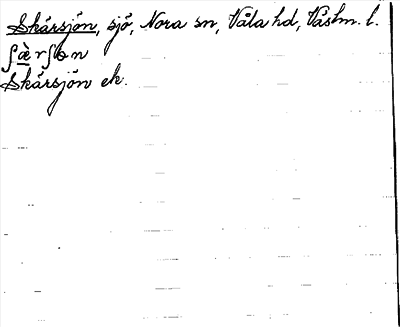 Skärsjön, sjö, Nora sn, Våla hd, Västm. l.
ʃæ̀rʃɷn
Skärsjön ek.